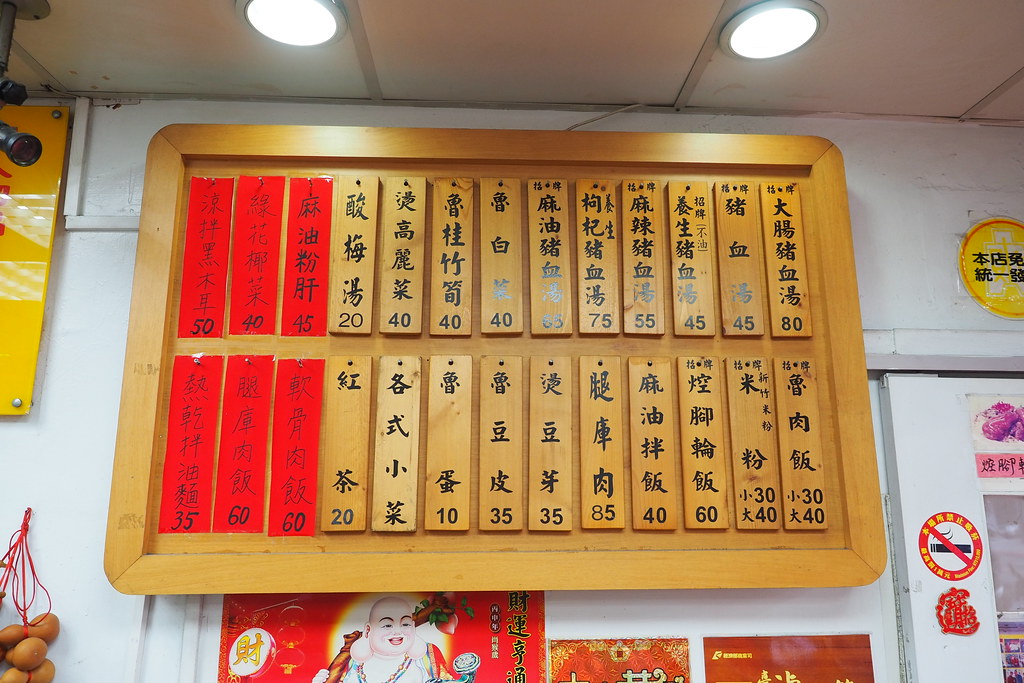 招牌
大腸豬血湯
80
招牌
豬血湯
45
招牌(不油)
養生豬血湯
45
招牌
麻辣豬血湯
55
養生
枸杞豬血湯
75
招牌
麻油豬血湯
65
魯白菜
40
魯桂竹筍
40
燙高麗菜
40
酸梅湯
20
麻油粉肝
45
綠花椰菜
40
涼拌黑木耳
50
招牌
魯肉飯
小30
大40
招牌
新竹米粉
米粉
小30
大40
招牌
焢腳輪飯
60
麻油拌飯
40
腿庫肉
85
燙豆芽
35
魯豆皮
35
魯蛋
10
各式小菜
紅茶
20
軟骨肉飯
60
腿庫肉飯
60
熱乾拌油麵
35
本店発
統一發
本場所禁止吸菸
財運亨通
丙申年
財